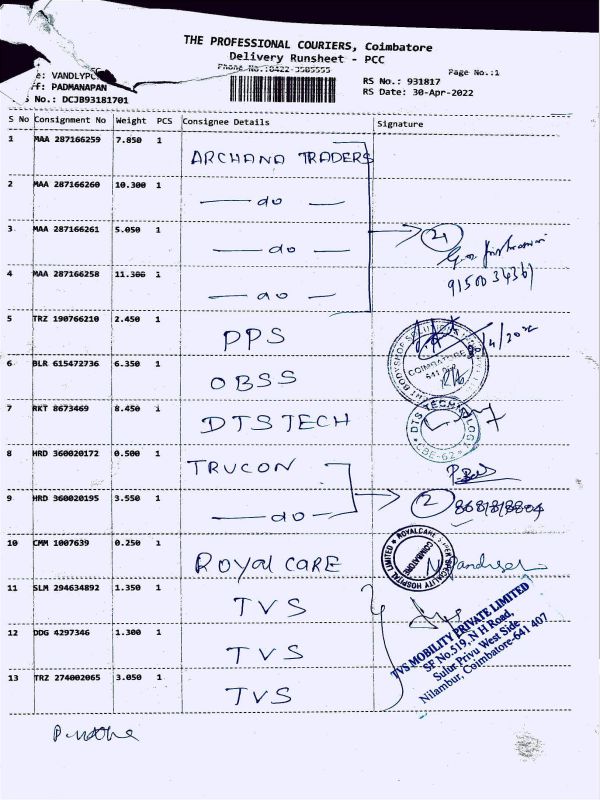 THE PROFESSIONAL COURIERS, Coimbatore
Delivery Runsheet - PCC
Phone No.:0422-3505555
Page No.:1
RS No.: 931817
RS Date: 30-Apr-2022
e: VANDLYPC
ff: PADMANAPAN
s No.: DCJB93181701
S No Consignment No Weight PCS Consignee Details Signature
1 MAA 287166259 7.850 1 ARCHANA TRADERS
2 MAA 287166260 10.300 1 — do —
3 MAA 287166261 5.050 1 — do —
4 MAA 287166258 11.300 1 — do —
4
9150034361
5 TRZ 190766210 2.450 1 PPS
30/4/2022
COIMBATORE
641
6 BLR 615472736 6.350 1 OBSS
7 RKT 8673469 8.450 1 DTS TECH
DTS TECHNOLOGY
CBE-62
8 HRD 360020172 0.500 1 TRUCON
9 HRD 360020195 3.550 1 — do —
2
10 CMM 1007639 0.250 1 ROYAL CARE
ROYALCARE SUPER SPECIALITY HOSPITAL LIMITED
COIMBATORE
11 SLM 294634892 1.350 1 TVS
12 DDG 4297346 1.300 1 TVS
13 TRZ 274002065 3.050 1 TVS
TVS MOBILITY PRIVATE LIMITED
SF No.519, N H Road,
Sulur Privu West Side
Nilambur, Coimbatore-641 407